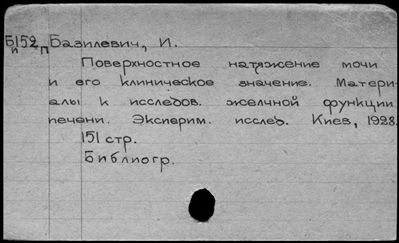 Б152п Базилевич, И.
и
Поверхностное натяжение мочи
и его клиническое значение. Матери-
алы к исследов. желчной функции
печени. Эксперим. исслед. Киев, 1928.
151 стр.
Библиогр.